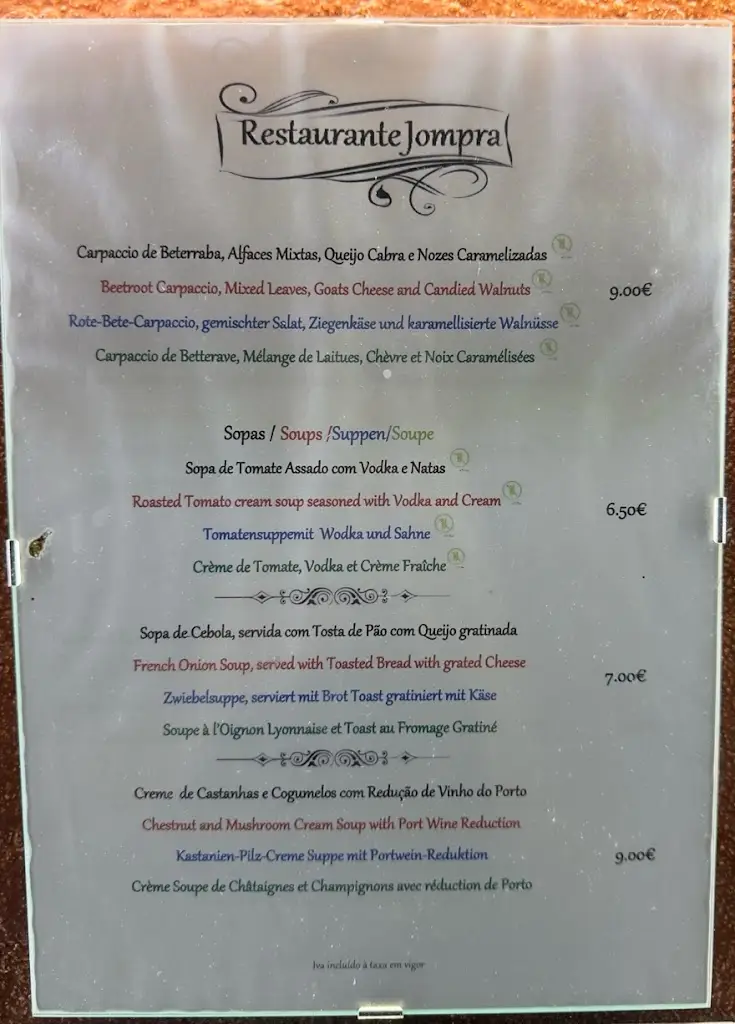 Restaurante Jompra
Carpaccio de Beterraba, Alfaces Mixtas, Queijo Cabra e Nozes Caramelizadas
Beetroot Carpaccio, Mixed Leaves, Goats Cheese and Candied Walnuts
9.00€
Rote-Bete-Carpaccio, gemischter Salat, Ziegenkäse und karamellisierte Walnüsse
Carpaccio de Betterave, Mélange de Laitues, Chèvre et Noix Caramélisées
Sopas / Soups /Suppen/Soupe
Sopa de Tomate Assado com Vodka e Natas
Roasted Tomato cream soup seasoned with Vodka and Cream
6.50€
Tomatensuppemit Wodka und Sahne
Crème de Tomate, Vodka et Crème Fraîche
Sopa de Cebola, servida com Tosta de Pão com Queijo gratinada
French Onion Soup, served with Toasted Bread with grated Cheese
7.00€
Zwiebelsuppe, serviert mit Brot Toast gratiniert mit Käse
Soupe à l'Oignon Lyonnaise et Toast au Fromage Gratiné
Creme de Castanhas e Cogumelos com Redução de Vinho do Porto
Chestnut and Mushroom Cream Soup with Port Wine Reduction
Kastanien-Pilz-Creme Suppe mit Portwein-Reduktion
9.00€
Crème Soupe de Châtaignes et Champignons avec réduction de Porto
Iva incluído à taxa em vigor